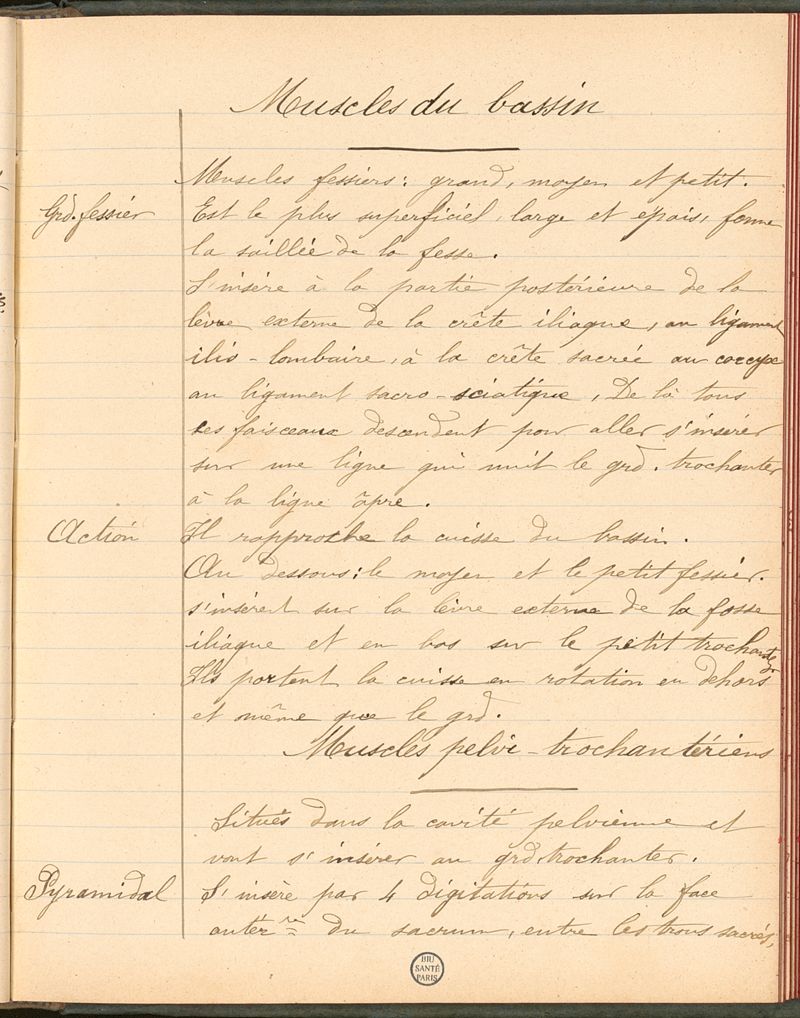 Muscles du bassin
Muscles fessiers : grand, moyen et petit.
Grd. fessier
Est le plus superficiel, large et épais, forme
la saillie de la fesse.
S'insère à la partie postérieure de la
lèvre externe de la crête iliaque, au ligament
ilio-lombaire, à la crête sacrée au coccyx
au ligament sacro-sciatique, De là tous
les faisceaux descendent pour aller s'insérer
sur une ligne qui unit le grd. trochanter
à la ligne âpre.
Action
Il rapproche la cuisse du bassin.
Au dessous : le moyen et le petit fessier.
s'insérent sur la lèvre externe de la fosse
iliaque et en bas sur le petit trochanter
Ils portent la cuisse en rotation en dehors
et même que le grd.
Muscles pelvi-trochantériens
Situés dans la cavité pelvienne et
vont s'insérer au grd trochanter.
Pyramidal
S'insère par 4 digitations sur la face
antér.re du sacrum, entre les trous sacrés,
BIU
SANTÉ
PARIS